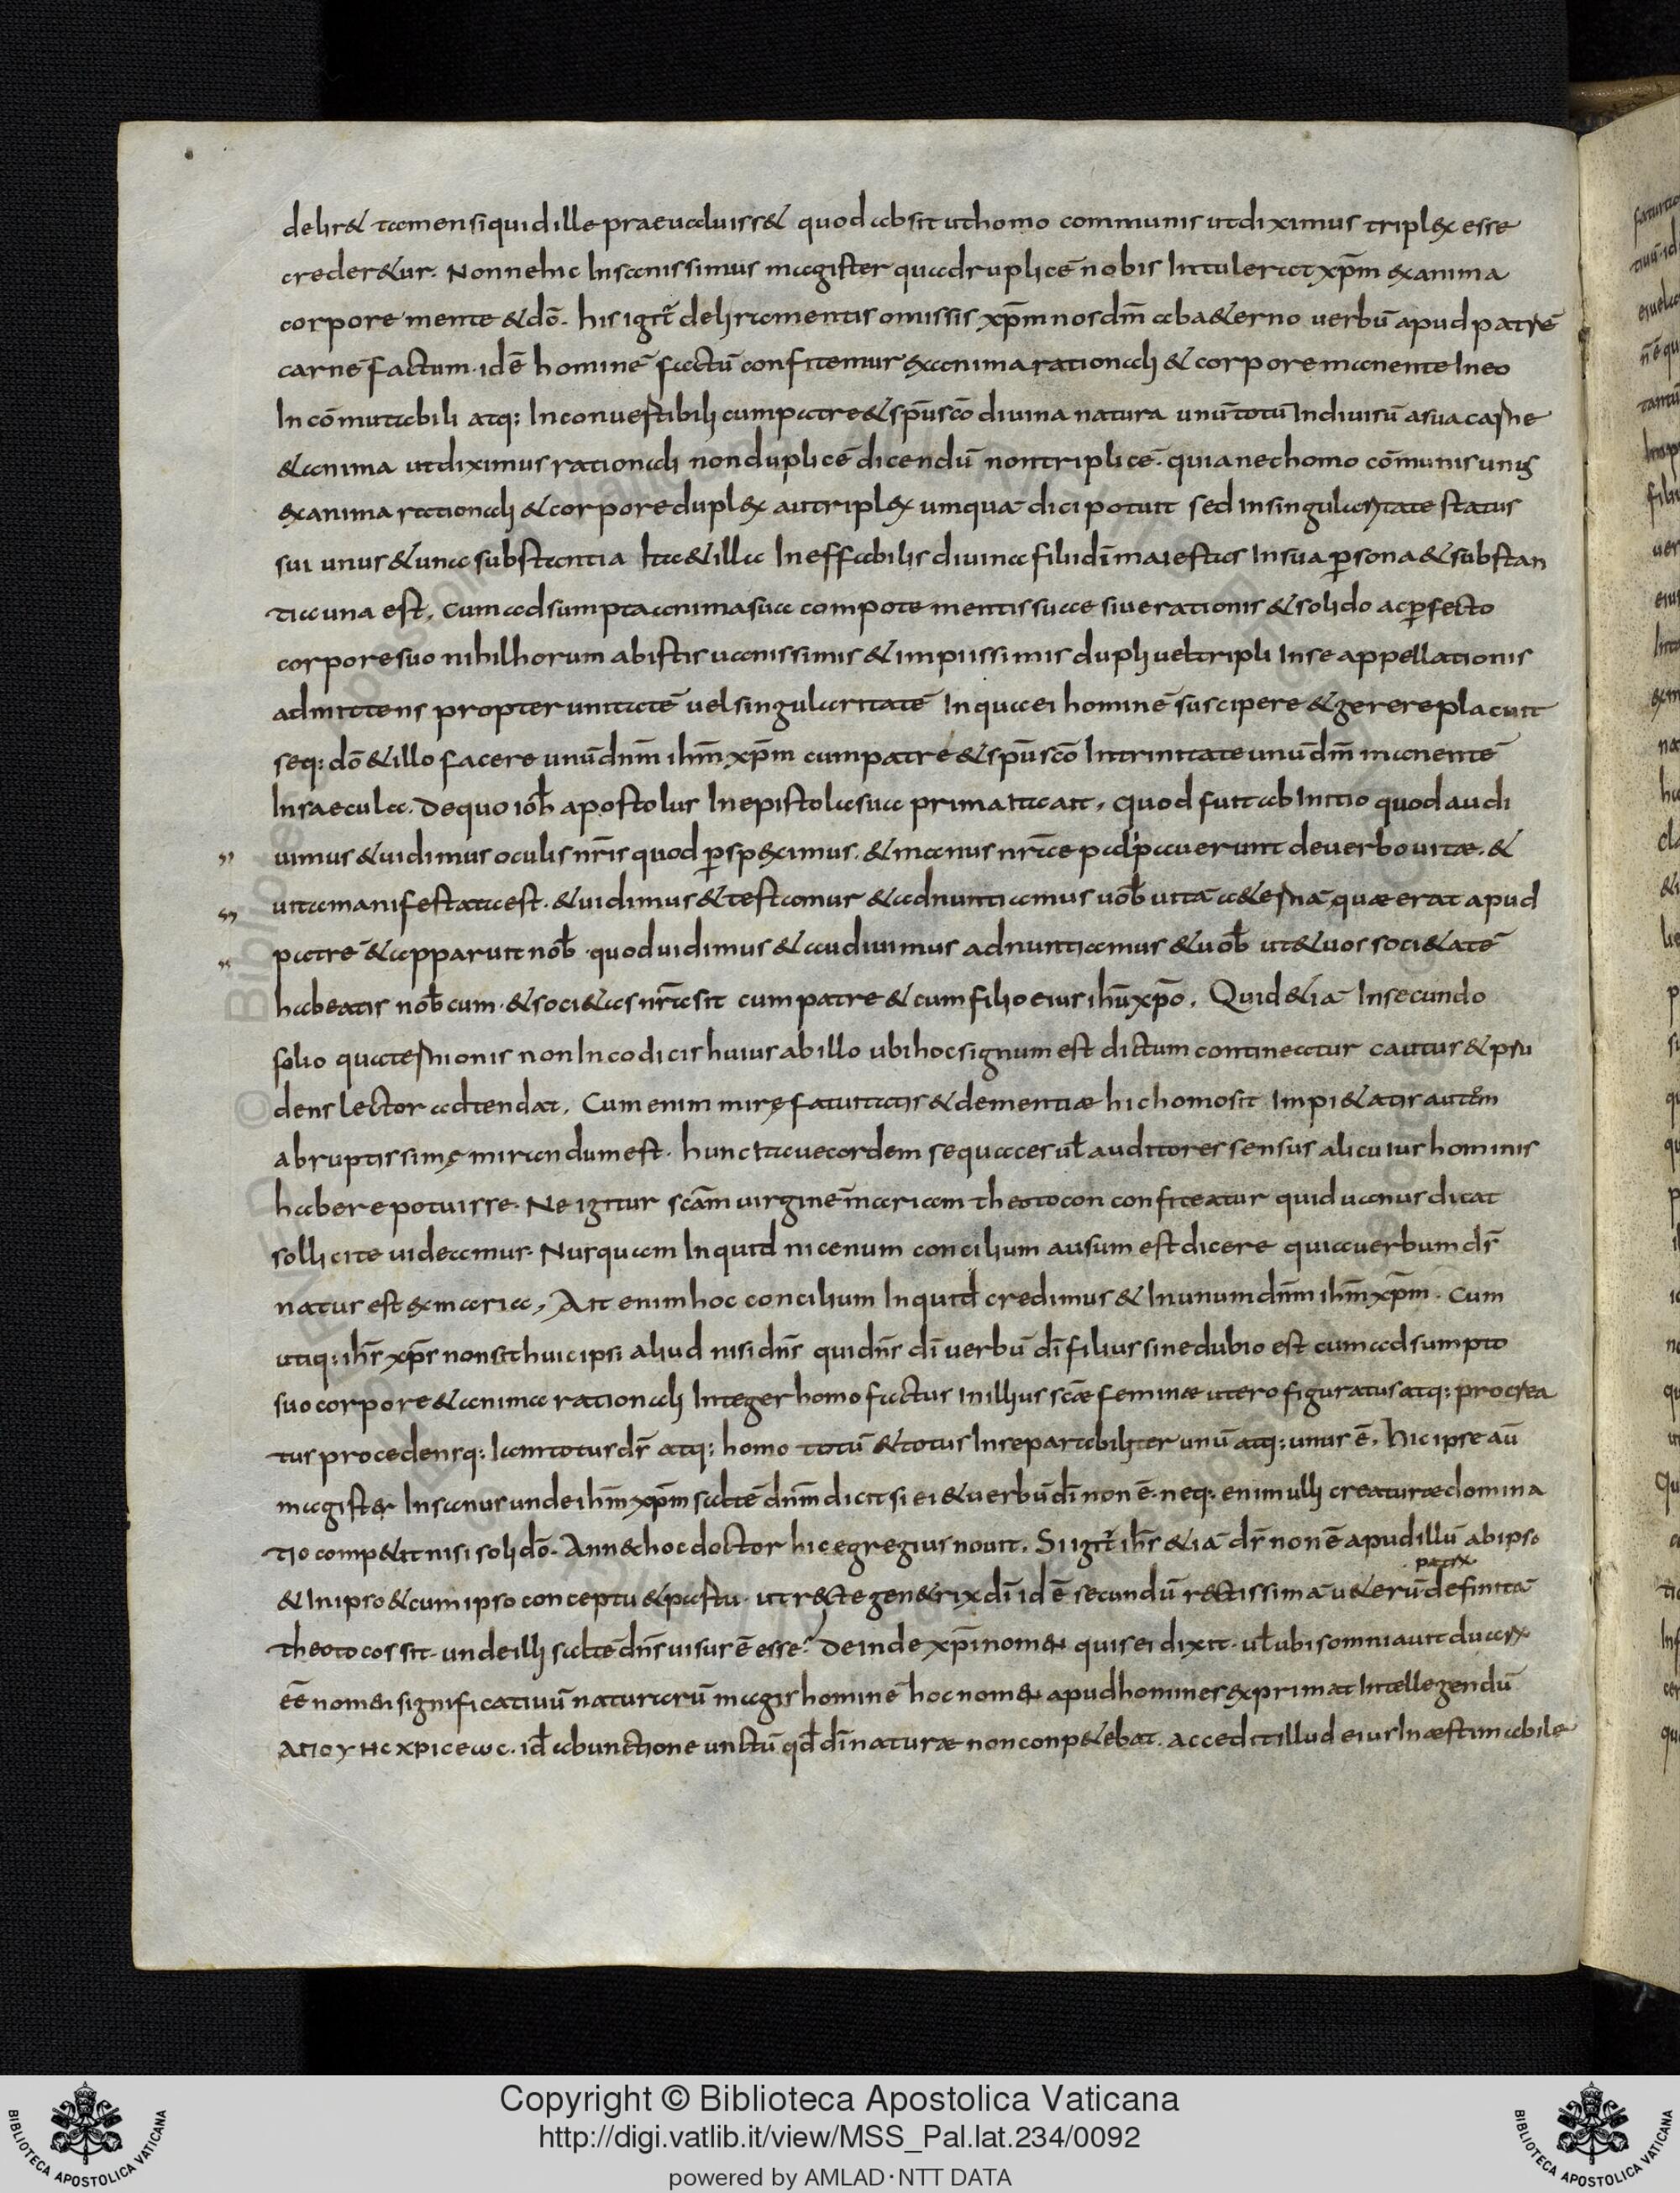 delir& tamen si quid ille praeualuiss& quod absit ut homo communis ut diximus triplex esse
creder&ur. Nonne hic Insanissimus magister quadruplicē nobis Intulerat xp̄m ex anima
corpore mente & dō. his igit̄ deliramentis omissis xp̄m nos dm̄ ab a&erno uerbū apud patrē
carnē factum. idē hominē factū confitemur ex anima rationali & corpore manente In eo
In cōmutabili atq: Inconuertibili cum patre & sp̄u sc̄o diuina natura unū totū Indiuisū a sua carne
& anima ut diximus rationali non duplicē dicendū non triplicē. quia nec homo cōmunis unus
ex anima rationali & corpore duplex aut triplex umquā dici potuit sed In singularitate status
sui unus & una substantia Ita & illa Ineffabilis diuina filii dī maiestas In sua p̱sona & substan
tia una est, cum adsumpta anima sua compote mentis suae siue rationis & solido ac p̱fecto
corpore suo nihil horum ab istis uanissimis & impiissimis dupli uel tripli In se appellationis
admittens propter unitatē uel singularitatē In qua ei hominē suscipere & gerere placuit
seq: dō & illo facere unū dnm̄ ihm̄ xp̄m cum patre & sp̄u sc̄o In trinitate unū dm̄ manentē
In saecula. De quo ioh̄ apostolus In epistola sua prima Ita ait, quod fuit ab Initio quod audi
” uimus & uidimus oculis nr̄is quod p̱speximus. & manus nr̄ae palpauerunt de uerbo uitæ. &
” uita manifestata est. & uidimus & testamur & adnuntiamus uob̄ uitā a&ernā quæ erat apud
” patrē & apparuit nob̄. quod uidimus & audiuimus adnuntiamus & uob̄ ut & uos soci&atē
habeatis nob̄cum. & soci&as nr̄a sit cum patre & cum filio eius ihū xp̄o. Quid &iā In secundo
folio quaternionis non In codicis huius ab illo ubi hoc signum est dictum contineatur cautus & pru
dens lector adtendat. Cum enim mirę fatuitatis & dementiæ hic homo sit Impi&atis autem
abruptissimę mirandum est. hunc Ita uecordem sequaces ul̄ auditores sensus alicuius hominis
habere potuisse. Ne igitur scām uirginē mariam theotocon confiteatur quid uanus dicat
sollicite uideamur. Nusquam Inquid nicenum concilium ausum est dicere quia uerbum ds̄
natus est ex maria, Ait enim hoc concilium Inquid credimus & In unum dnm̄ ihm̄ xp̄m. Cum
utiq: ihs̄ xp̄s non sit huic ipsi aliud nisi dns̄ qui dns̄ dī uerbū dī filius sine dubio est cum adsumpto
suo corpore & anima rationali Integer homo factus In illius scæ feminæ utero figuratus atq: procrea
tus procedensq: Iam totus ds̄ atq: homo totū & totus Inseparabiliter unū atq: unus ē. hic ipse aū
magist& Insanus unde ihm̄ xp̄m saltē dnm̄ dicit si ei & uerbū dī non ē. neq: enim ulli creaturæ domina
tio comp&it nisi soli dō. An n& hoc doctor hic egregius nouit. Si igit̄ ihs̄ &iā ds̄ non ē apud illū ab ipso
& In ipso & cum ipso conceptu & partu. ut recte gen&rix dī id ē secundū rectissimā u&erū patrū definitā
theotocos sit. unde illi saltē dns̄ uisus ē esse? Deinde xp̄i nom& quis ei dixit. ul̄ ubi somniauit duarū
eē nom& significatiuū naturarū magis hominē hoc nom& apud homines exprimat Intellegendū
ΑΠΟ ΥΗϹ ΧΡΙϹΕωϹ. id̄ ab unctione unctū qd̄ dī naturæ non conp&ebat. accedit illud eius Inæstimabile
Copyright © Biblioteca Apostolica Vaticana
http://digi.vatlib.it/view/MSS_Pal.lat.234/0092
powered by AMLAD·NTT DATA
BIBLIOTECA APOSTOLICA VATICANA
BIBLIOTECA APOSTOLICA VATICANA